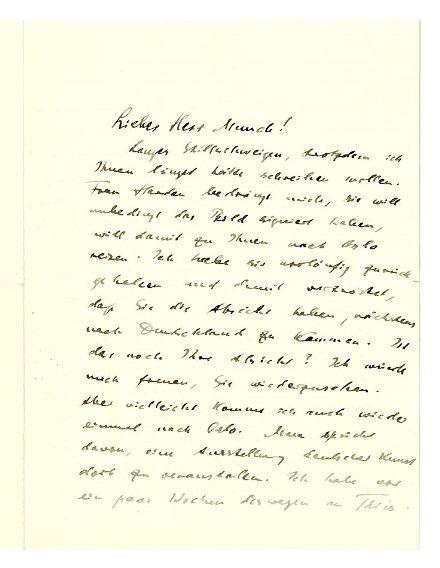 Lieber Herr Munch!
Langes Stillschweigen, trotzdem ich
Ihnen längst hätte schreiben wollen.
Frau Harden bedrängt mich, sie will
unbedingt das Bild signiert haben,
will damit zu Ihnen nach Oslo
reisen. Ich habe sie vorläufig zurück-
gehalten und damit vertröstet,
daß Sie die Absicht haben, nächstens
nach Deutschland zu kommen. Ist
das noch Ihre Absicht? Ich würde
mich freuen, Sie wiederzusehen.
Aber vielleicht komme ich auch wieder
einmal nach Oslo. Man spricht
davon, eine Ausstellung deutscher Kunst
dort zu veranstalten. Ich habe vor
ein paar Wochen deswegen an Thiis